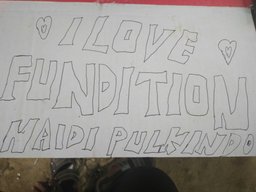 I LOVE
FUNDITION
HAIDI PULKINDO